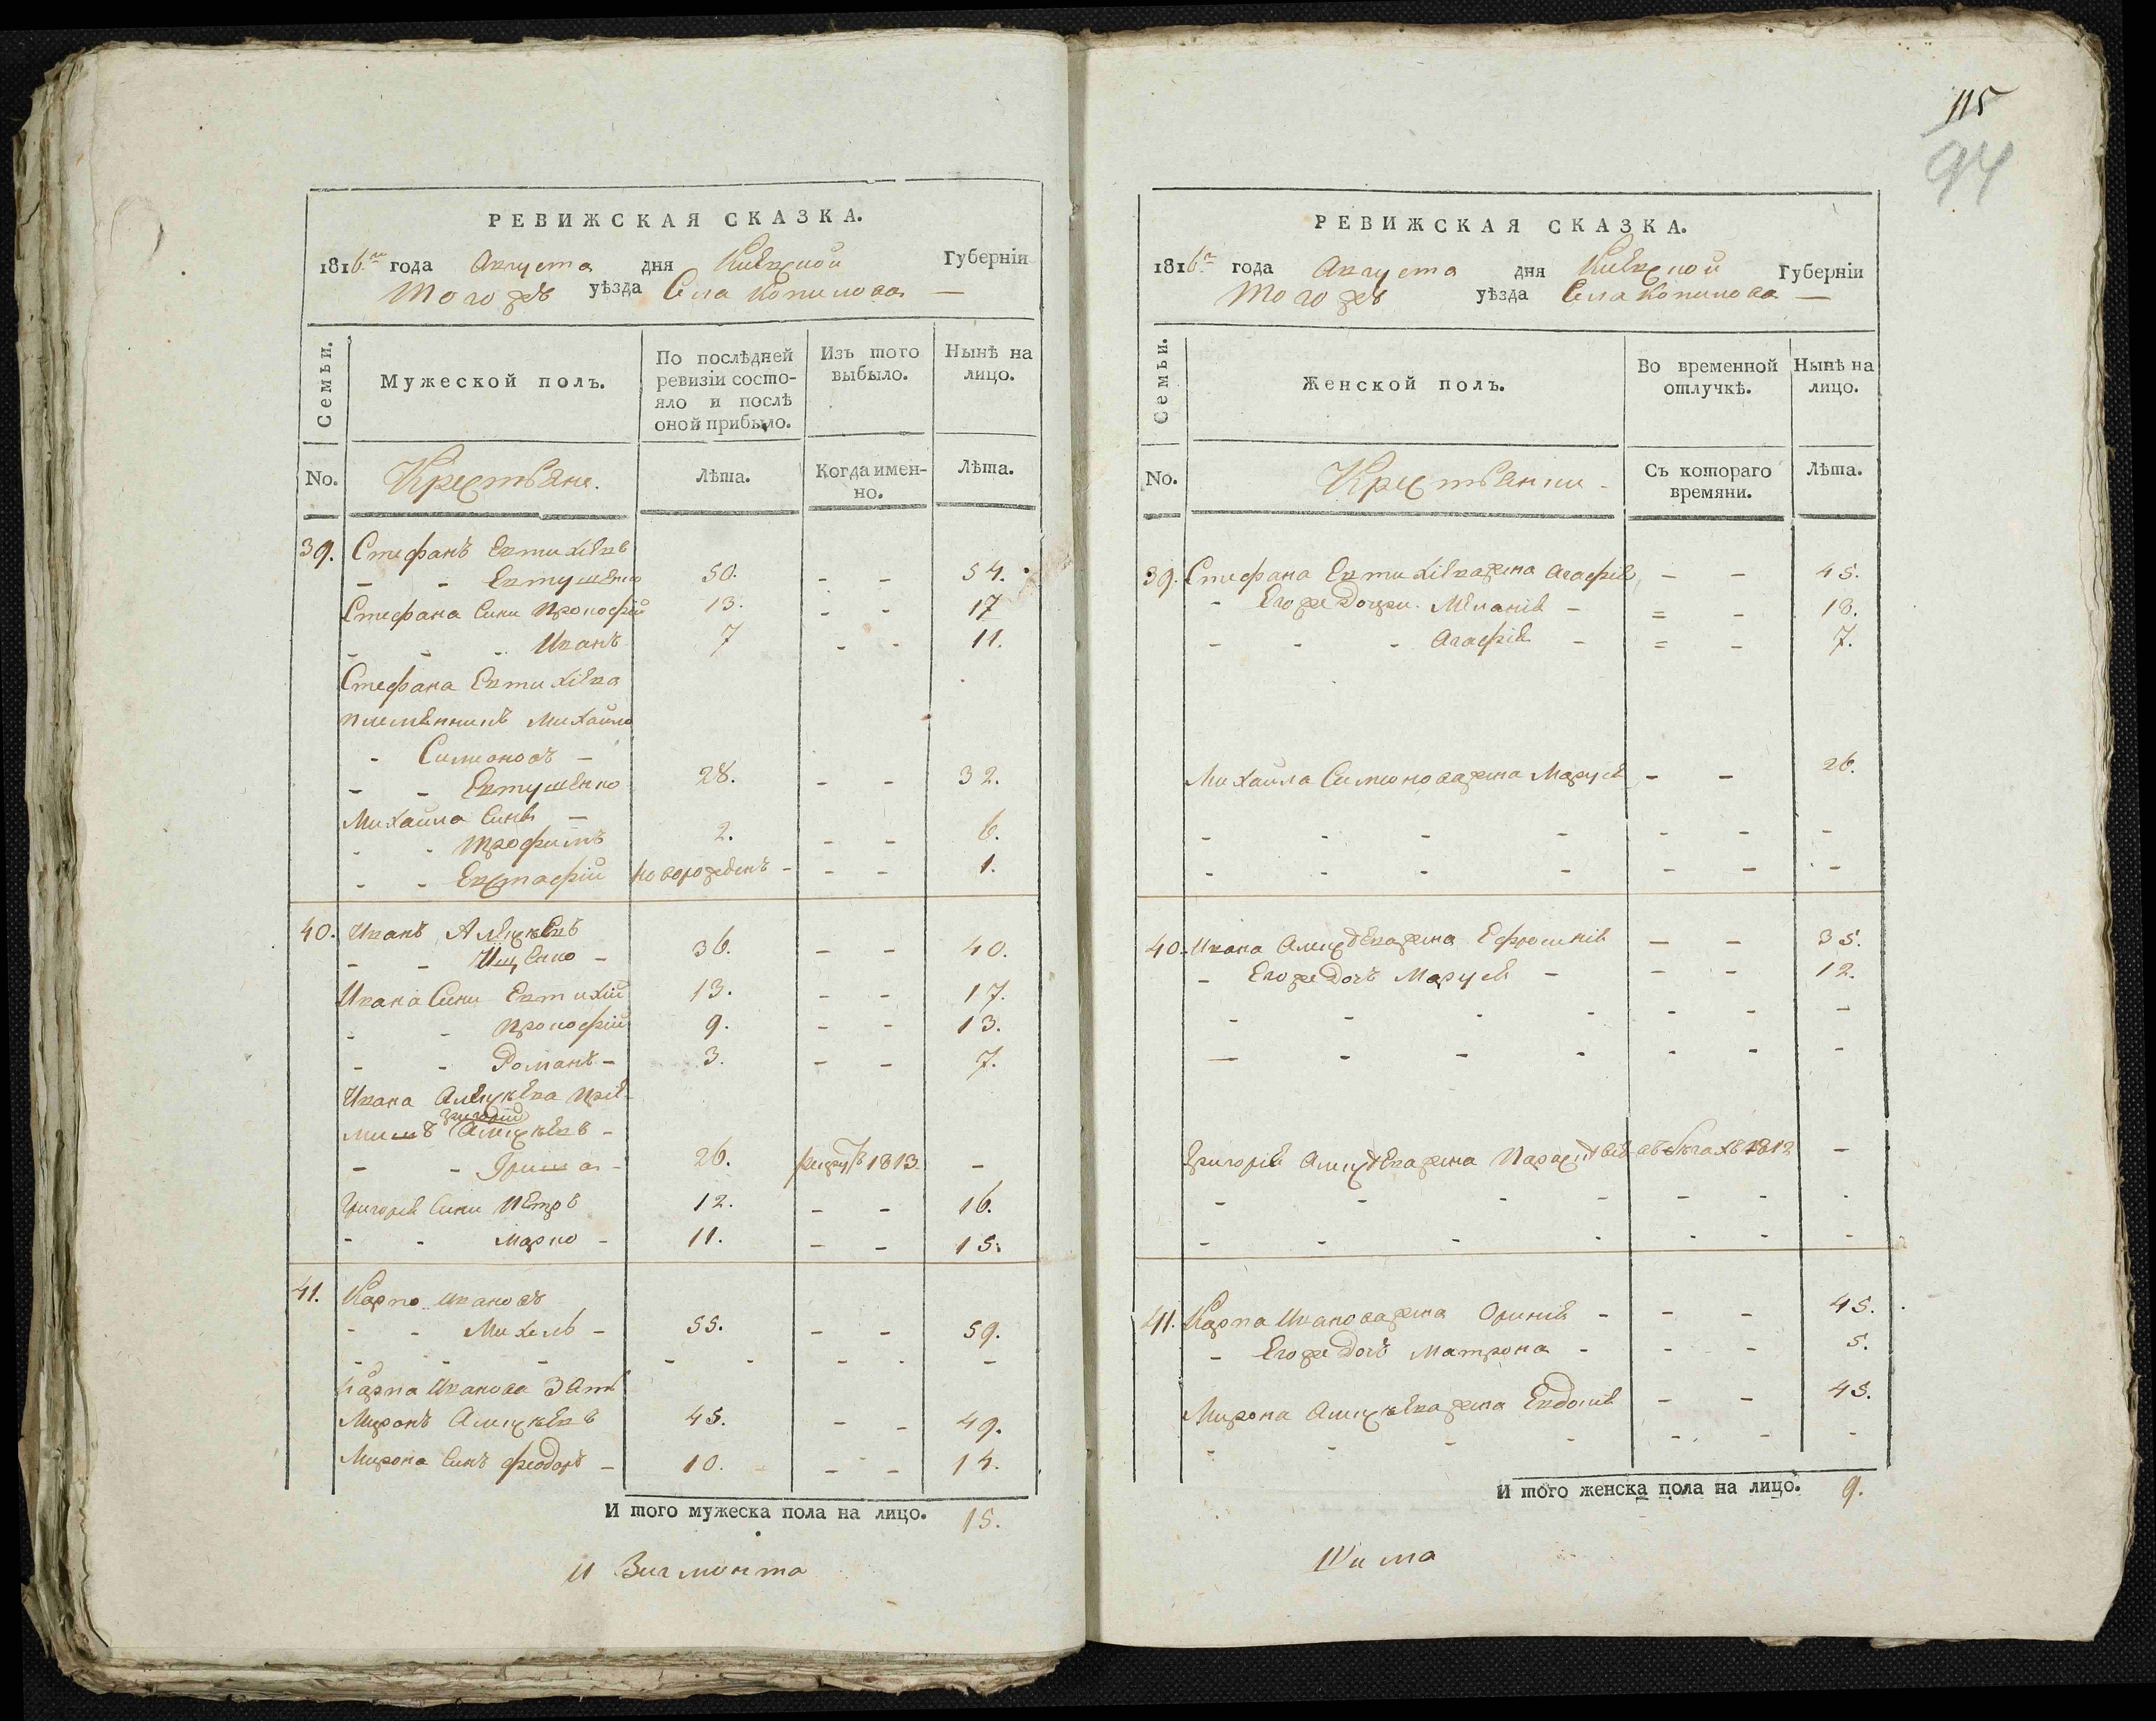 РЕВИЖСКАЯ СКАЗКА.
1816го года Августа дня Киевской Губерніи
Тогожъ уѣзда Села Копилова —
Семьи. Мужеской полъ. По послѣдней ревизіи состояло и послѣ оной прибыло. Изъ того выбыло. Нынѣ на лицо.
No. Крестьяне. Лѣта. Когда именно. Лѣта.
39. Стефанъ Евтихіевъ
- - Евтушенко 50. - - 54.
Стефана Сини Прокофій 13. - - 17
- - - Иванъ 7 - - 11.
Стефана Евтихіева
племѣнникъ Михайло
- Симоновъ -
- - Евтушенко 28. - - 32.
Михайла Синъ -
- - Трофимъ 2. - - 6.
- - Евстафій новорожденъ - - - 1.
40. Иванъ Алексѣевъ
- - Ищенко - 36. - - 40.
Ивана Сини Евтихій 13. - - 17.
- - Прокофій 9. - - 13.
- - Романъ - 3. - - 7.
Ивана Алексѣева Прій-
Григорій
мишъ Алексѣевъ -
- - Гриша - 26. рекрутъ 1813 -
Григорія Сини Петръ 12. - - 16.
- - Марко - 11. - - 15.
41. Карпо Ивановъ
- - Михель - 55. - - 59.
- - - - - - - -
Карпа Иванова Зять
Миронъ Алексѣевъ 45. - - 49.
Мирона Синъ Феодоръ - 10. - - 14.
И того мужеска пола на лицо. 15.
И Зигмонта
115
94
РЕВИЖСКАЯ СКАЗКА.
1816го года Августа дня Киевской Губерніи
Тогожъ уѣзда Села Копилова —
Семьи. Женской полъ. Во временной отлучкѣ. Нынѣ на лицо.
No. Крестьянки - Съ котораго времяни. Лѣта.
39. Стефана Евтихіева жена Агафія - - 45.
- Егоже Доцки Меланія - = - 18.
- - - Агафія - = - 7.
Михайла Симонова жена Маруся - - 26.
- - - - - - -
- - - - - - -
40. Ивана Алексѣева жена Ефросинія - - 35.
- Егоже Дочъ Маруся - - - 12.
- - - - - - -
- - - - - - -
Григорія Алексѣева жена Параскевія въ бѣгахъ 1812 -
- - - - - - -
- - - - - - -
41. Карпа Иванова жена Оринія - - - 45.
- Егоже Дочъ Матрона - - - 5.
Мирона Алексѣева жена Евдокія - - 45.
- - - - - - -
И того женска пола на лицо. 9.